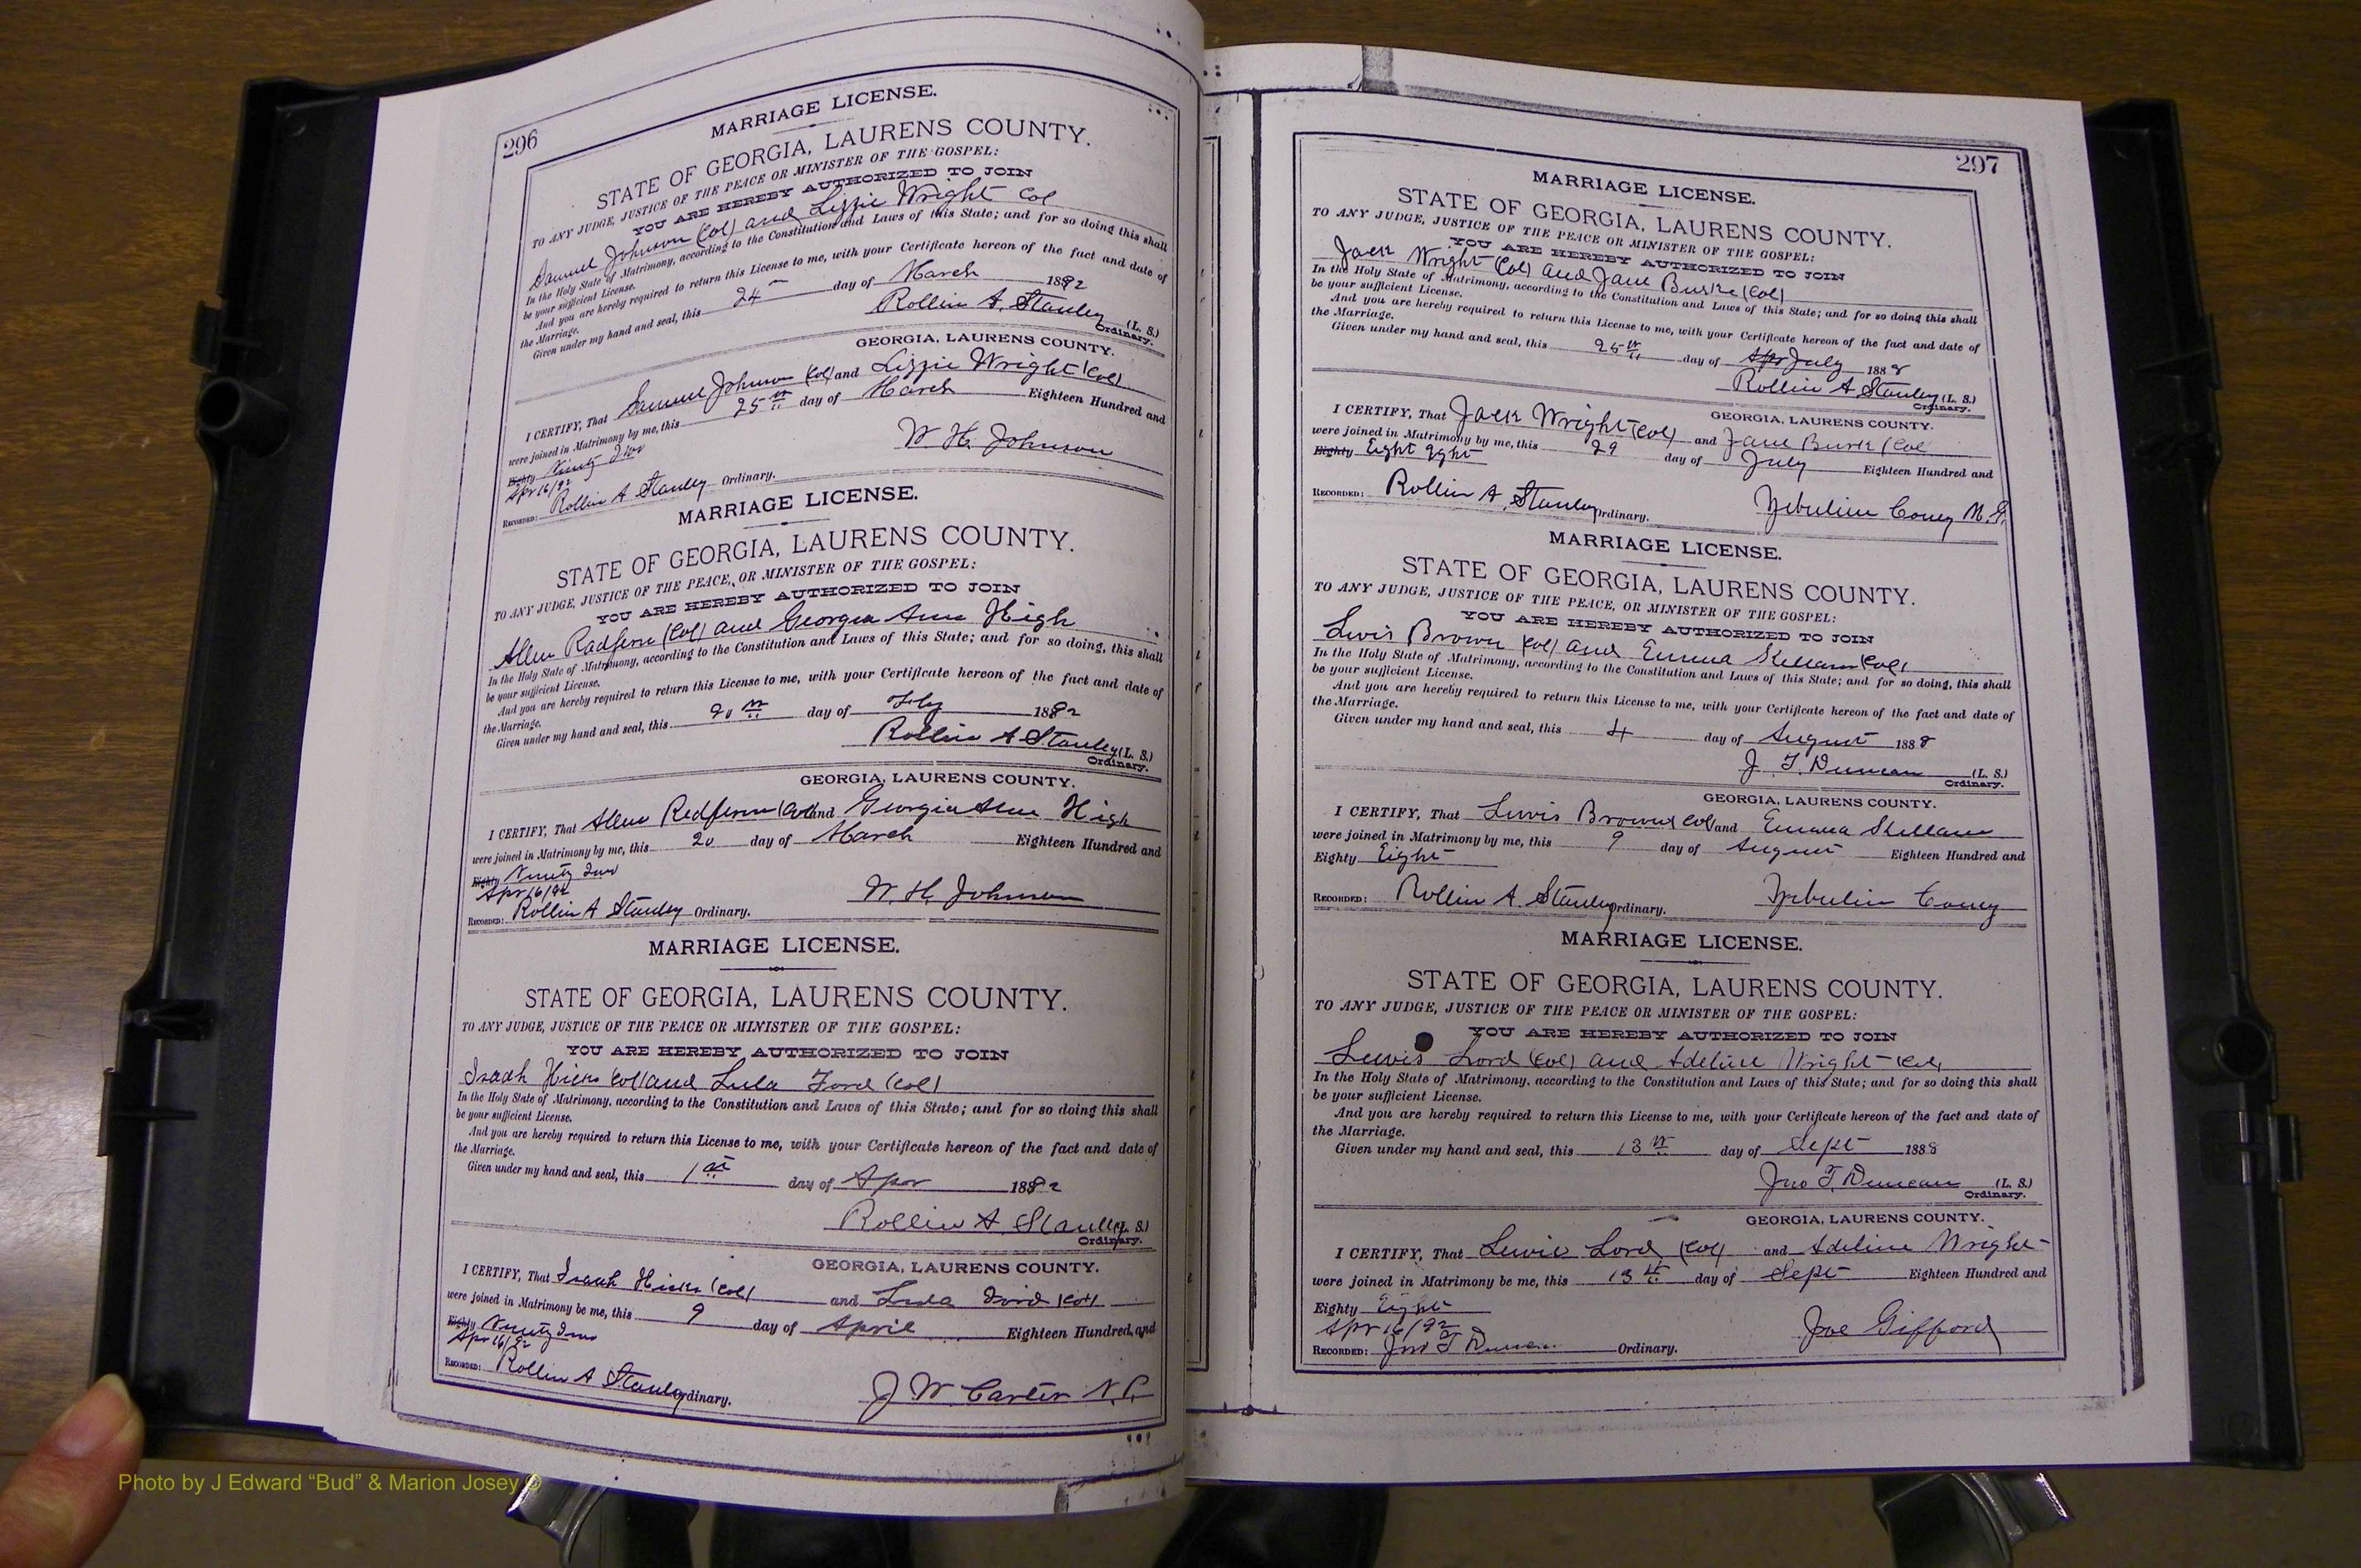 296
MARRIAGE LICENSE.
STATE OF GEORGIA, LAURENS COUNTY.
TO ANY JUDGE, JUSTICE OF THE PEACE OR MINISTER OF THE GOSPEL:
YOU ARE HEREBY AUTHORIZED TO JOIN
Samuel Johnson (Col) and Lizzie Wright Col
In the Holy State of Matrimony, according to the Constitution and Laws of this State; and for so doing this shall
be your sufficient License.
And you are hereby required to return this License to me, with your Certificate hereon of the fact and date of
the Marriage.
Given under my hand and seal, this 24 day of March 1892
Rollin A. Stanley (L. S.)
Ordinary.
GEORGIA, LAURENS COUNTY.
I CERTIFY, That Samuel Johnson (Col) and Lizzie Wright (Col)
were joined in Matrimony by me, this 25th day of March Eighteen Hundred and
Eighty Ninety Two
Apr 16/92
W. H. Johnson
RECORDED: Rollin A Stanley Ordinary.
MARRIAGE LICENSE.
STATE OF GEORGIA, LAURENS COUNTY.
TO ANY JUDGE, JUSTICE OF THE PEACE, OR MINISTER OF THE GOSPEL:
YOU ARE HEREBY AUTHORIZED TO JOIN
Allen Radfern (Col) and Georgia Ann High
In the Holy State of Matrimony, according to the Constitution and Laws of this State; and for so doing, this shall
be your sufficient License.
And you are hereby required to return this License to me, with your Certificate hereon of the fact and date of
the Marriage.
Given under my hand and seal, this 20th day of 1892
Rollin A Stanley (L. S.)
Ordinary.
GEORGIA, LAURENS COUNTY.
I CERTIFY, That Allen Redfern (Col) and Georgia Ann High
were joined in Matrimony by me, this 20 day of March Eighteen Hundred and
Eighty Ninety Two
Apr 16/92
W. H. Johnson
RECORDED: Rollin A Stanley Ordinary.
MARRIAGE LICENSE.
STATE OF GEORGIA, LAURENS COUNTY.
TO ANY JUDGE, JUSTICE OF THE PEACE OR MINISTER OF THE GOSPEL:
YOU ARE HEREBY AUTHORIZED TO JOIN
Isaah Hicks (Col) and Lula Ford (Col)
In the Holy State of Matrimony, according to the Constitution and Laws of this State; and for so doing this shall
be your sufficient License.
And you are hereby required to return this License to me, with your Certificate hereon of the fact and date of
the Marriage.
Given under my hand and seal, this 1st day of Apr 1892
Rollin A. Stanley (L. S.)
Ordinary.
GEORGIA, LAURENS COUNTY.
I CERTIFY, That Isaah Hicks (Col) and Lula Ford (Col)
were joined in Matrimony be me, this 9 day of April Eighteen Hundred and
Eighty Ninety Two
Apr 16/92
RECORDED: Rollin A Stanley Ordinary.
J W Carter N. P.
297
MARRIAGE LICENSE.
STATE OF GEORGIA, LAURENS COUNTY.
TO ANY JUDGE, JUSTICE OF THE PEACE OR MINISTER OF THE GOSPEL:
YOU ARE HEREBY AUTHORIZED TO JOIN
Jack Wright (Col) and Jane Burke (Col)
In the Holy State of Matrimony, according to the Constitution and Laws of this State; and for so doing this shall
be your sufficient License.
And you are hereby required to return this License to me, with your Certificate hereon of the fact and date of
the Marriage.
Given under my hand and seal, this 25th day of Apr July 1888
Rollin A Stanley (L. S.)
Ordinary.
GEORGIA, LAURENS COUNTY.
I CERTIFY, That Jack Wright (Col) and Jane Burk (Col
were joined in Matrimony by me, this 29 day of July Eighteen Hundred and
Eighty Eight
RECORDED: Rollin A. Stanley Ordinary.
Coney M. G.
MARRIAGE LICENSE.
STATE OF GEORGIA, LAURENS COUNTY.
TO ANY JUDGE, JUSTICE OF THE PEACE, OR MINISTER OF THE GOSPEL:
YOU ARE HEREBY AUTHORIZED TO JOIN
Lewis Brown (Col) and Emma (Col)
In the Holy State of Matrimony, according to the Constitution and Laws of this State; and for so doing, this shall
be your sufficient License.
And you are hereby required to return this License to me, with your Certificate hereon of the fact and date of
the Marriage.
Given under my hand and seal, this 4 day of August 1888
J. T. Duncan (L. S.)
Ordinary.
GEORGIA, LAURENS COUNTY.
I CERTIFY, That Lewis Brown (Col) and Emma
were joined in Matrimony by me, this 9 day of August Eighteen Hundred and
Eighty Eight
RECORDED: Rollin A. Stanley Ordinary.
Coney
MARRIAGE LICENSE.
STATE OF GEORGIA, LAURENS COUNTY.
TO ANY JUDGE, JUSTICE OF THE PEACE OR MINISTER OF THE GOSPEL:
YOU ARE HEREBY AUTHORIZED TO JOIN
Lewis Lord (Col) and Adeline Wright (Col)
In the Holy State of Matrimony, according to the Constitution and Laws of this State; and for so doing this shall
be your sufficient License.
And you are hereby required to return this License to me, with your Certificate hereon of the fact and date of
the Marriage.
Given under my hand and seal, this 13th day of Sept 1888
Jno T. Duncan (L. S.)
Ordinary.
GEORGIA, LAURENS COUNTY.
I CERTIFY, That Lewis Lord (Col) and Adeline Wright
were joined in Matrimony be me, this 13th day of Sept Eighteen Hundred and
Eighty Eight
Apr 16/92
Joe Gifford
RECORDED: Jno T Duncan Ordinary.
Photo by J Edward “Bud” & Marion Josey ©